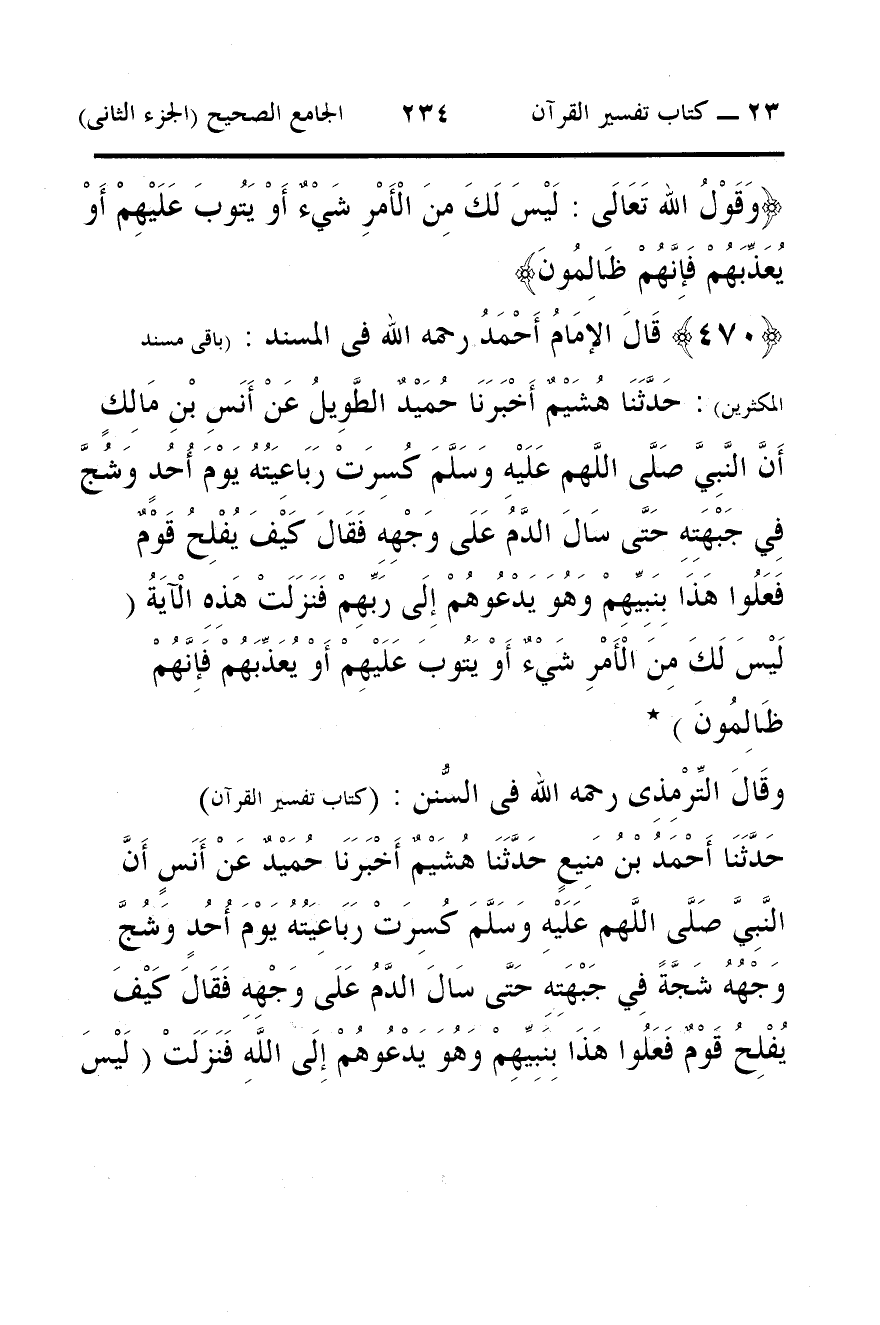 ٢٣ ــ كتاب تفسير القرآن ٢٣٤ الجامع الصحيح (الجزء الثانى)
﴿وَقَوْلُ الله تَعَالَى : لَيْسَ لَكَ مِنَ الْأَمْرِ شَيْءٌ أَوْ يَتُوبَ عَلَيْهِمْ أَوْ
يُعَذِّبَهُمْ فَإِنَّهُمْ ظَالِمُونَ﴾
﴿٤٧٠﴾ قَالَ الإِمَامُ أَحْمَدُ رحمه الله فى المسند : (باقى مسند
المكثرين) : حَدَّثَنَا هُشَيْمٌ أَخْبَرَنَا حُمَيْدٌ الطَّوِيلُ عَنْ أَنَسِ بْنِ مَالِكٍ
أَنَّ النَّبِيَّ صَلَّى اللَّهم عَلَيْهِ وَسَلَّمَ كُسِرَتْ رَبَاعِيَتُهُ يَوْمَ أُحُدٍ وَشُجَّ
فِي جَبْهَتِهِ حَتَّى سَالَ الدَّمُ عَلَى وَجْهِهِ فَقَالَ كَيْفَ يُفْلِحُ قَوْمٌ
فَعَلُوا هَذَا بِنَبِيِّهِمْ وَهُوَ يَدْعُوهُمْ إِلَى رَبِّهِمْ فَنَزَلَتْ هَذِهِ الْآيَةُ (
لَيْسَ لَكَ مِنَ الْأَمْرِ شَيْءٌ أَوْ يَتُوبَ عَلَيْهِمْ أَوْ يُعَذِّبَهُمْ فَإِنَّهُمْ
ظَالِمُونَ ) *
وقَالَ التِّرْمِذِى رحمه الله فى السُّنن : (كتاب تفسير القرآن)
حَدَّثَنَا أَحْمَدُ بْنُ مَنِيعٍ حَدَّثَنَا هُشَيْمٌ أَخْبَرَنَا حُمَيْدٌ عَنْ أَنَسٍ أَنَّ
النَّبِيَّ صَلَّى اللَّهم عَلَيْهِ وَسَلَّمَ كُسِرَتْ رَبَاعِيَتُهُ يَوْمَ أُحُدٍ وَشُجَّ
وَجْهُهُ شَجَّةً فِي جَبْهَتِهِ حَتَّى سَالَ الدَّمُ عَلَى وَجْهِهِ فَقَالَ كَيْفَ
يُفْلِحُ قَوْمٌ فَعَلُوا هَذَا بِنَبِيِّهِمْ وَهُوَ يَدْعُوهُمْ إِلَى اللَّهِ فَنَزَلَتْ ( لَيْسَ